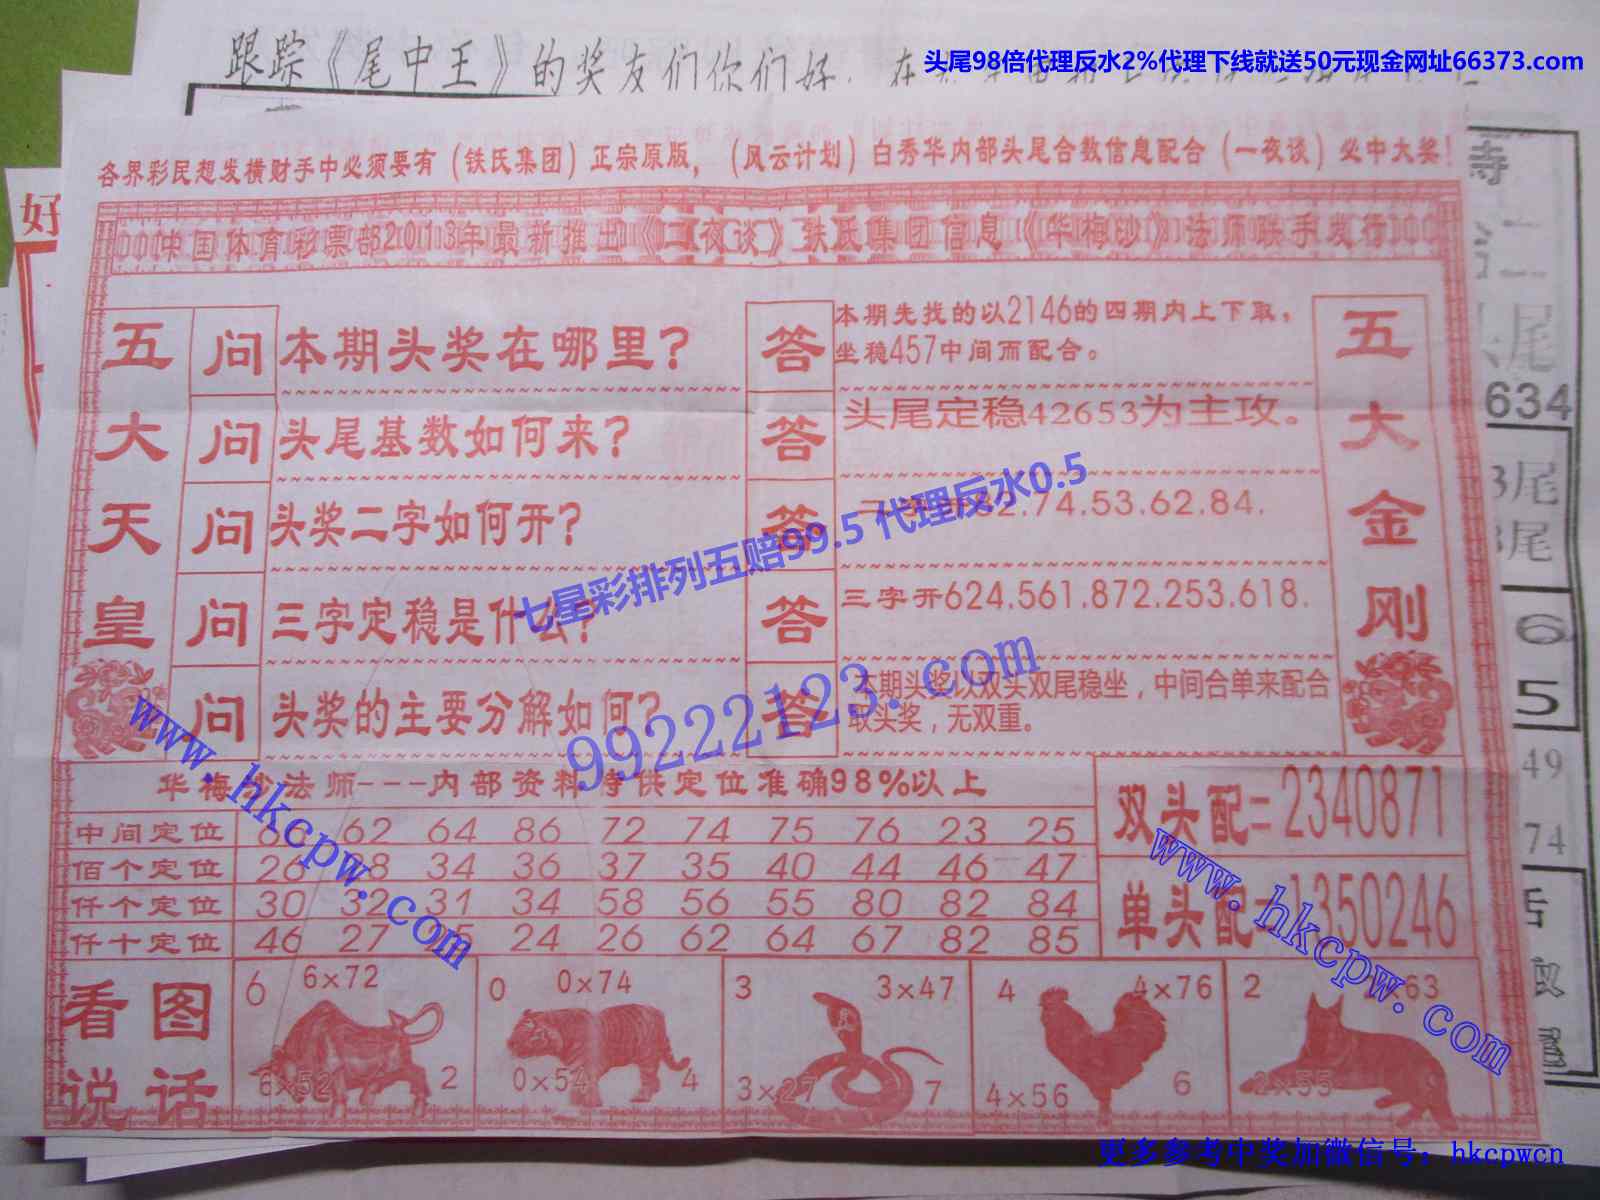 跟踪《尾中王》的奖友们你们好.在
头尾98倍代理反水2%代理下线就送50元现金网址66373.com
各界彩民想发横财手中必须要有（铁氏集团）正宗原版，（风云计划）白秀华内部头尾合数信息配合（一夜谈）必中大奖！
好
中国体育彩票部2013年最新推出《一夜谈》铁氏集团信息《华梅沙》法师联手发行
五大天皇
问 本期头奖在哪里？
答 本期先找的以2146的四期内上下取，
坐稳457中间而配合。
问 头尾基数如何来？
答 头尾定稳42653为主攻。
问 头奖二字如何开？
答 82.74.53.62.84.
问 三字定稳是什么？
答 三字开624.561.872.253.618.
问 头奖的主要分解如何？
答 本期头奖以双头双尾稳坐，中间合单来配合
取头奖，无双重。
五大金刚
七星彩排列五赔99.5 代理反水0.5
99222123.com
www.hkcpw.com
华梅沙法师---内部资料特供定位准确98%以上
中间定位 62 64 86 72 74 75 76 23 25
佰个定位 26 34 36 37 35 40 44 46 47
仟个定位 30 32 31 34 58 56 55 80 82 84
仟十定位 46 27 24 26 62 64 67 82 85
双头配=2340871
单头配=1350246
www.hkcpw.com
看图说话
6 6×72
6×52 2
0 0×74
0×54 4
3 3×47
3×27 7
4 4×76
4×56 6
2 63
2×55
寺
尾
634
3尾
尾
6
5
49
74
更多参考中奖加微信号：hkcpwcn